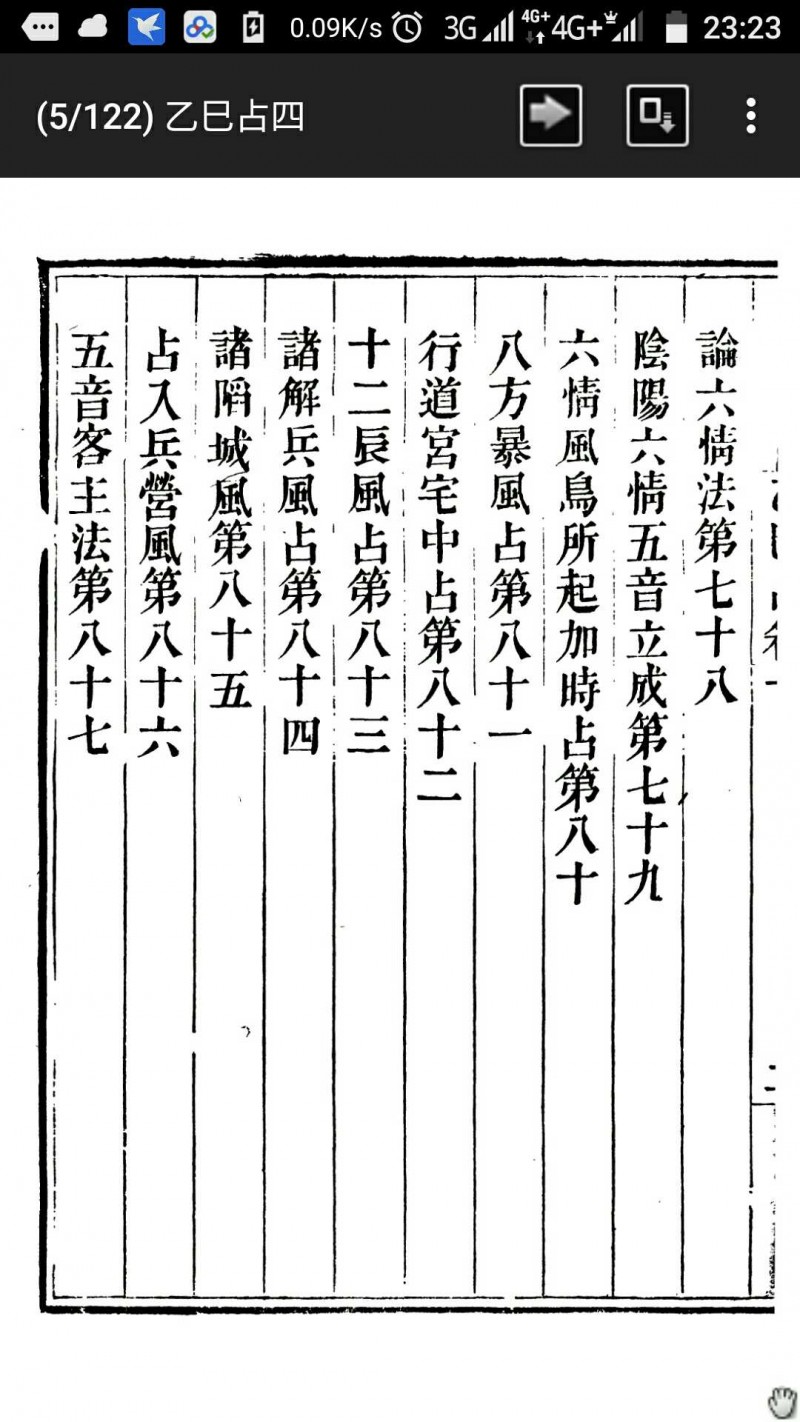 0.09K/s 3G 4G+ 4G+ 23:23
(5/122) 乙巳占四
論六情法第七十八
陰陽六情五音立成第七十九
六情風鳥所起加時占第八十
八方暴風占第八十一
行道宮宅中占第八十二
十二辰風占第八十三
諸解兵風占第八十四
諸陷城風第八十五
占入兵營風第八十六
五音客主法第八十七